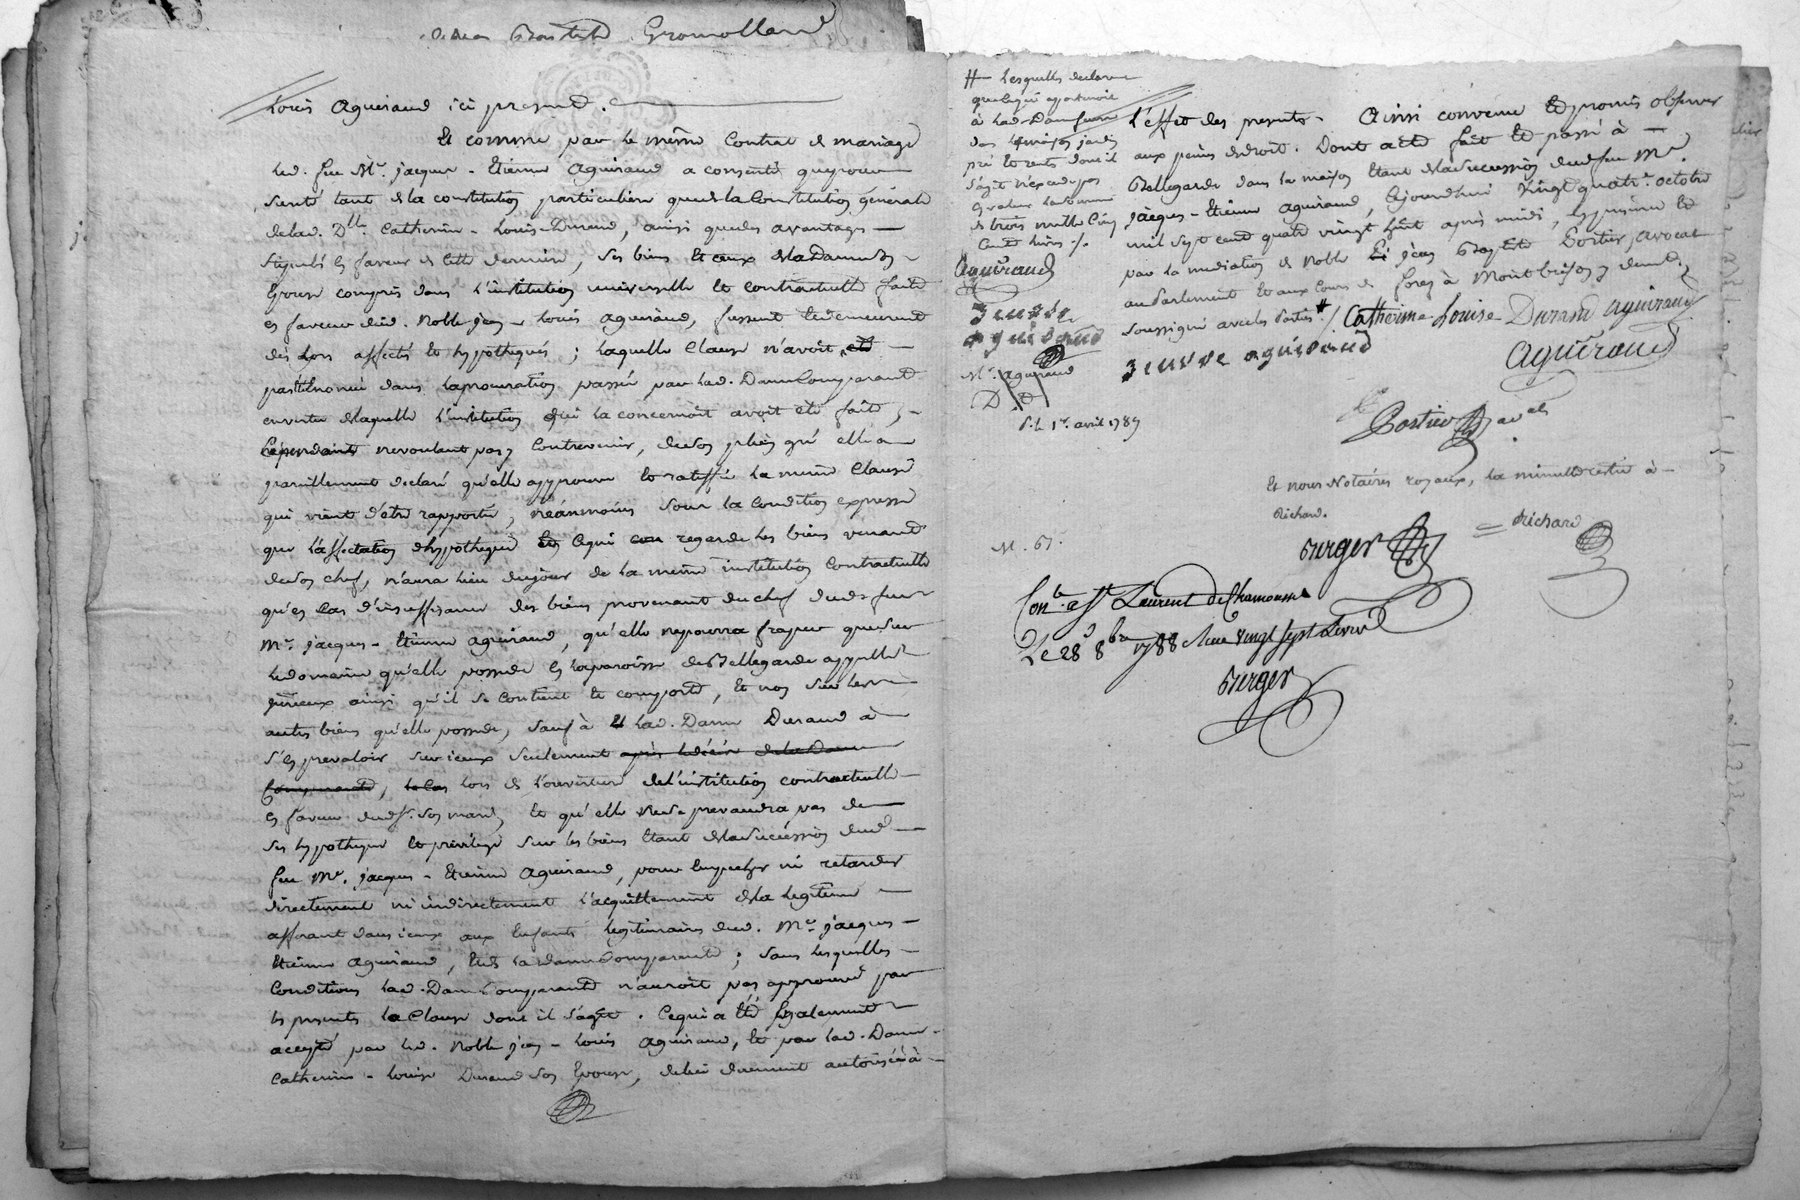 Jean Baptiste Gromolland
Louis aguiraud ici present.
Et comme par le même Contrat de mariage
led. feu Mr. jacques - Etienne aguiraud a consenti que pour
sureté tant de la constitution particuliere que de la Constitution générale
de lad. Dlle. Catherine - Louise Durand, ainsi que des avantages
stipulés en faveur de cette derniere, ses biens et ceux de la Dame son
Epouse compris dans l'institution universelle et contractuelle faite
en faveur dud. Noble jean - Louis aguiraud, fussent et demeurent
dès lors affectés et hypothequés ; laquelle Clause n'avoit été
pas énoncée dans la procuration passée par lad. Dame Comparante
en vertu de laquelle l'institution qui la concernoit avoit été faite,
Cependant ne voulant pas y Contrevenir, de son plein gré elle a
pareillement declaré qu'elle approuve et ratiffie la même Clause
qui vient d'être rapportée, néanmoins sous la Condition expresse
que l'affectation d'hypotheque en ce qui regarde les biens venant
de son chef, n'aura lieu du jour de la même institution contractuelle
qu'en cas d'insuffisance des biens provenant du chef dud. feu
Mr. jacques - Etienne aguiraud, qu'elle ne pourra fraper que sur
le domaine qu'elle possede en la paroisse de Bellegarde appellé
ainsi qu'il se Contient et comporte, et non sur les
autres biens qu'elle possede, sauf à lad. Dame Durand à
s'en prevaloir sur iceux seulement après le décès de la Dame
Comparante, lors de l'ouverture de l'institution contractuelle
en faveur dud. Sr. son mari, et qu'elle ne se prevaudra pas de
ses hypotheque et privilege sur les biens étant de la succession dud.
feu Mr. jacques - Etienne aguiraud, pour empecher ni retarder
directement ni indirectement l'acquittement de la legitime
afferant dans iceux aux Enfants legitimaires dud. Mr. jacques
Etienne aguiraud, et de la dame Comparante ; sans lesquelles
Conditions lad. Dame Comparante n'auroit pas approuvé par
les presentes la Clause dont il s'agit. Ce qui a été également
accepté par led. Noble jean - Louis aguiraud, et par lad. Dame
Catherine - Louise Durand son Epouse, de lui duement autorisée à
# Lesquelles declarent
que ce qui apartenoit
à lad. Dame
dans les maison jardin
pré et rente dont il
s'agit n'excede pas
en valeur la somme
de trois mille Cinq
Cents livres ./.
Aguiraud
veuve
aguiraud
Mr. aguiraud
D D
S.L 1er. avril 1789
l'effet des presentes. Ainsi convenu et promis observer
aux peines de droit. Dont acte fait et passé à
Bellegarde dans la maison étant de la succession dud. feu Mr.
jacques - Etienne aguiraud, cejourdhui vingt quatre octobre
mil sept cent quatre vingt huit après midi, en presence et
par la mediation de Noble jean Baptiste Postier avocat
au Parlement et aux Cours de forez à Montbrison y demt.
soussigné avec les Parties # / Catherine Louise Durand aguiraud
veuve aguiraud
Aguiraud
Postier avat
et nous Notaires royaux, la minutte restée à
Richard.
= Richard
Burger
M. 61.
Conle. a St Laurent de Chamousset
Le 28 8bre 1788 Recu vingt sept Livres
Burger